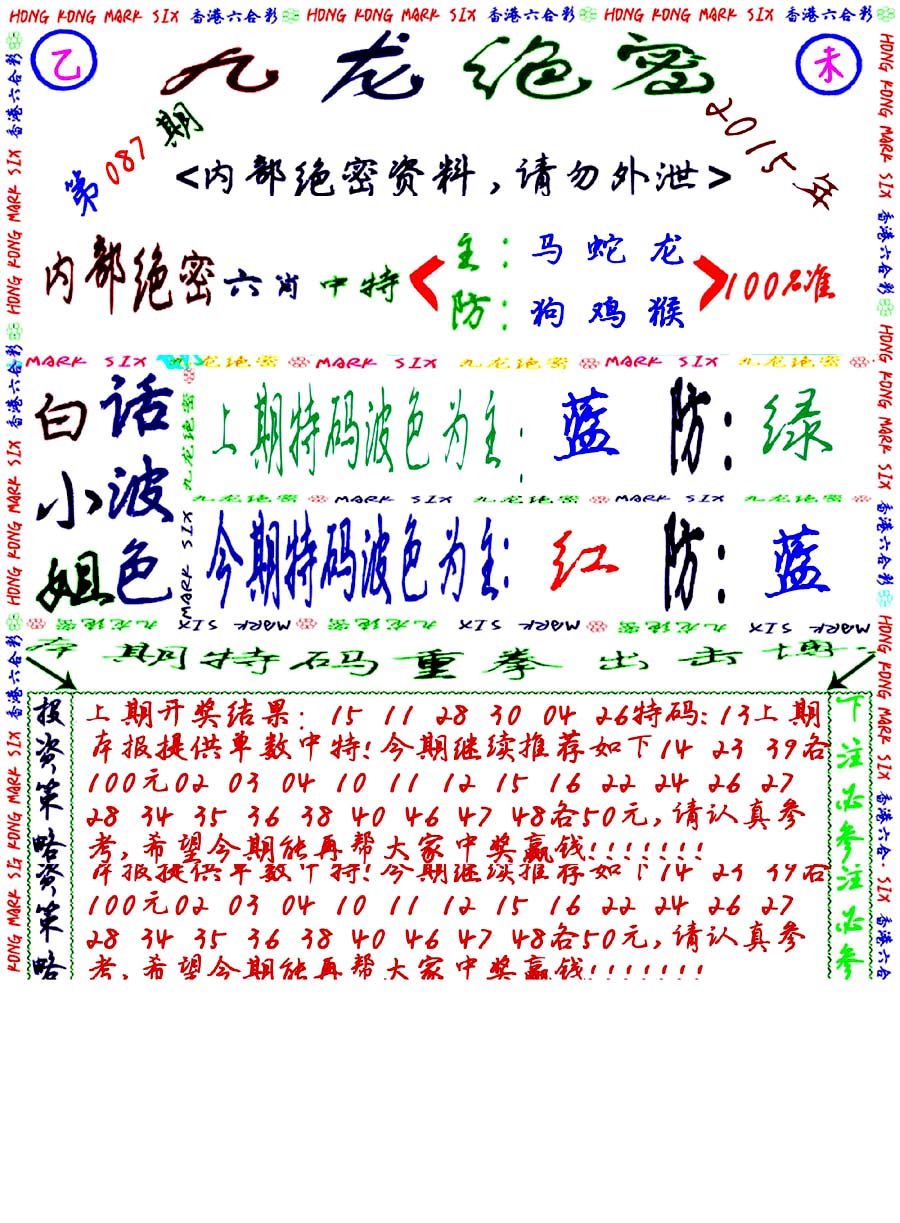 HONG KONG MARK SIX 香港六合彩 HONG KONG MARK SIX 香港六合彩 HONG KONG MARK SIX 香港六合彩
乙 九龙绝密 未
第087期 2015年
<内部绝密资料,请勿外泄>
内部绝密六肖中特
主:马蛇龙
防:狗鸡猴
100%准
MARK SIX 九龙绝密 MARK SIX 九龙绝密 MARK SIX 九龙绝密
白话小姐
波色
上期特码波色为主: 蓝 防: 绿
九龙绝密 MARK SIX 九龙绝密 MARK SIX 九龙绝密
今期特码波色为主: 红 防: 蓝
九龙绝密 MARK SIX 九龙绝密 MARK SIX 九龙绝密 MARK SIX
本期特码重拳出击博
投资策略资策略
上期开奖结果: 15 11 28 30 04 26特码:13上期
本报提供单数中特!今期继续推荐如下14 23 39各
100元02 03 04 10 11 12 15 16 22 24 26 27
28 34 35 36 38 40 46 47 48各50元,请认真参
考,希望今期能再帮大家中奖赢钱!!!!!!!
本报提供单数中特!今期继续推荐如下14 23 39各
100元02 03 04 10 11 12 15 16 22 24 26 27
28 34 35 36 38 40 46 47 48各50元,请认真参
考,希望今期能再帮大家中奖赢钱!!!!!!!
下注必参注必参